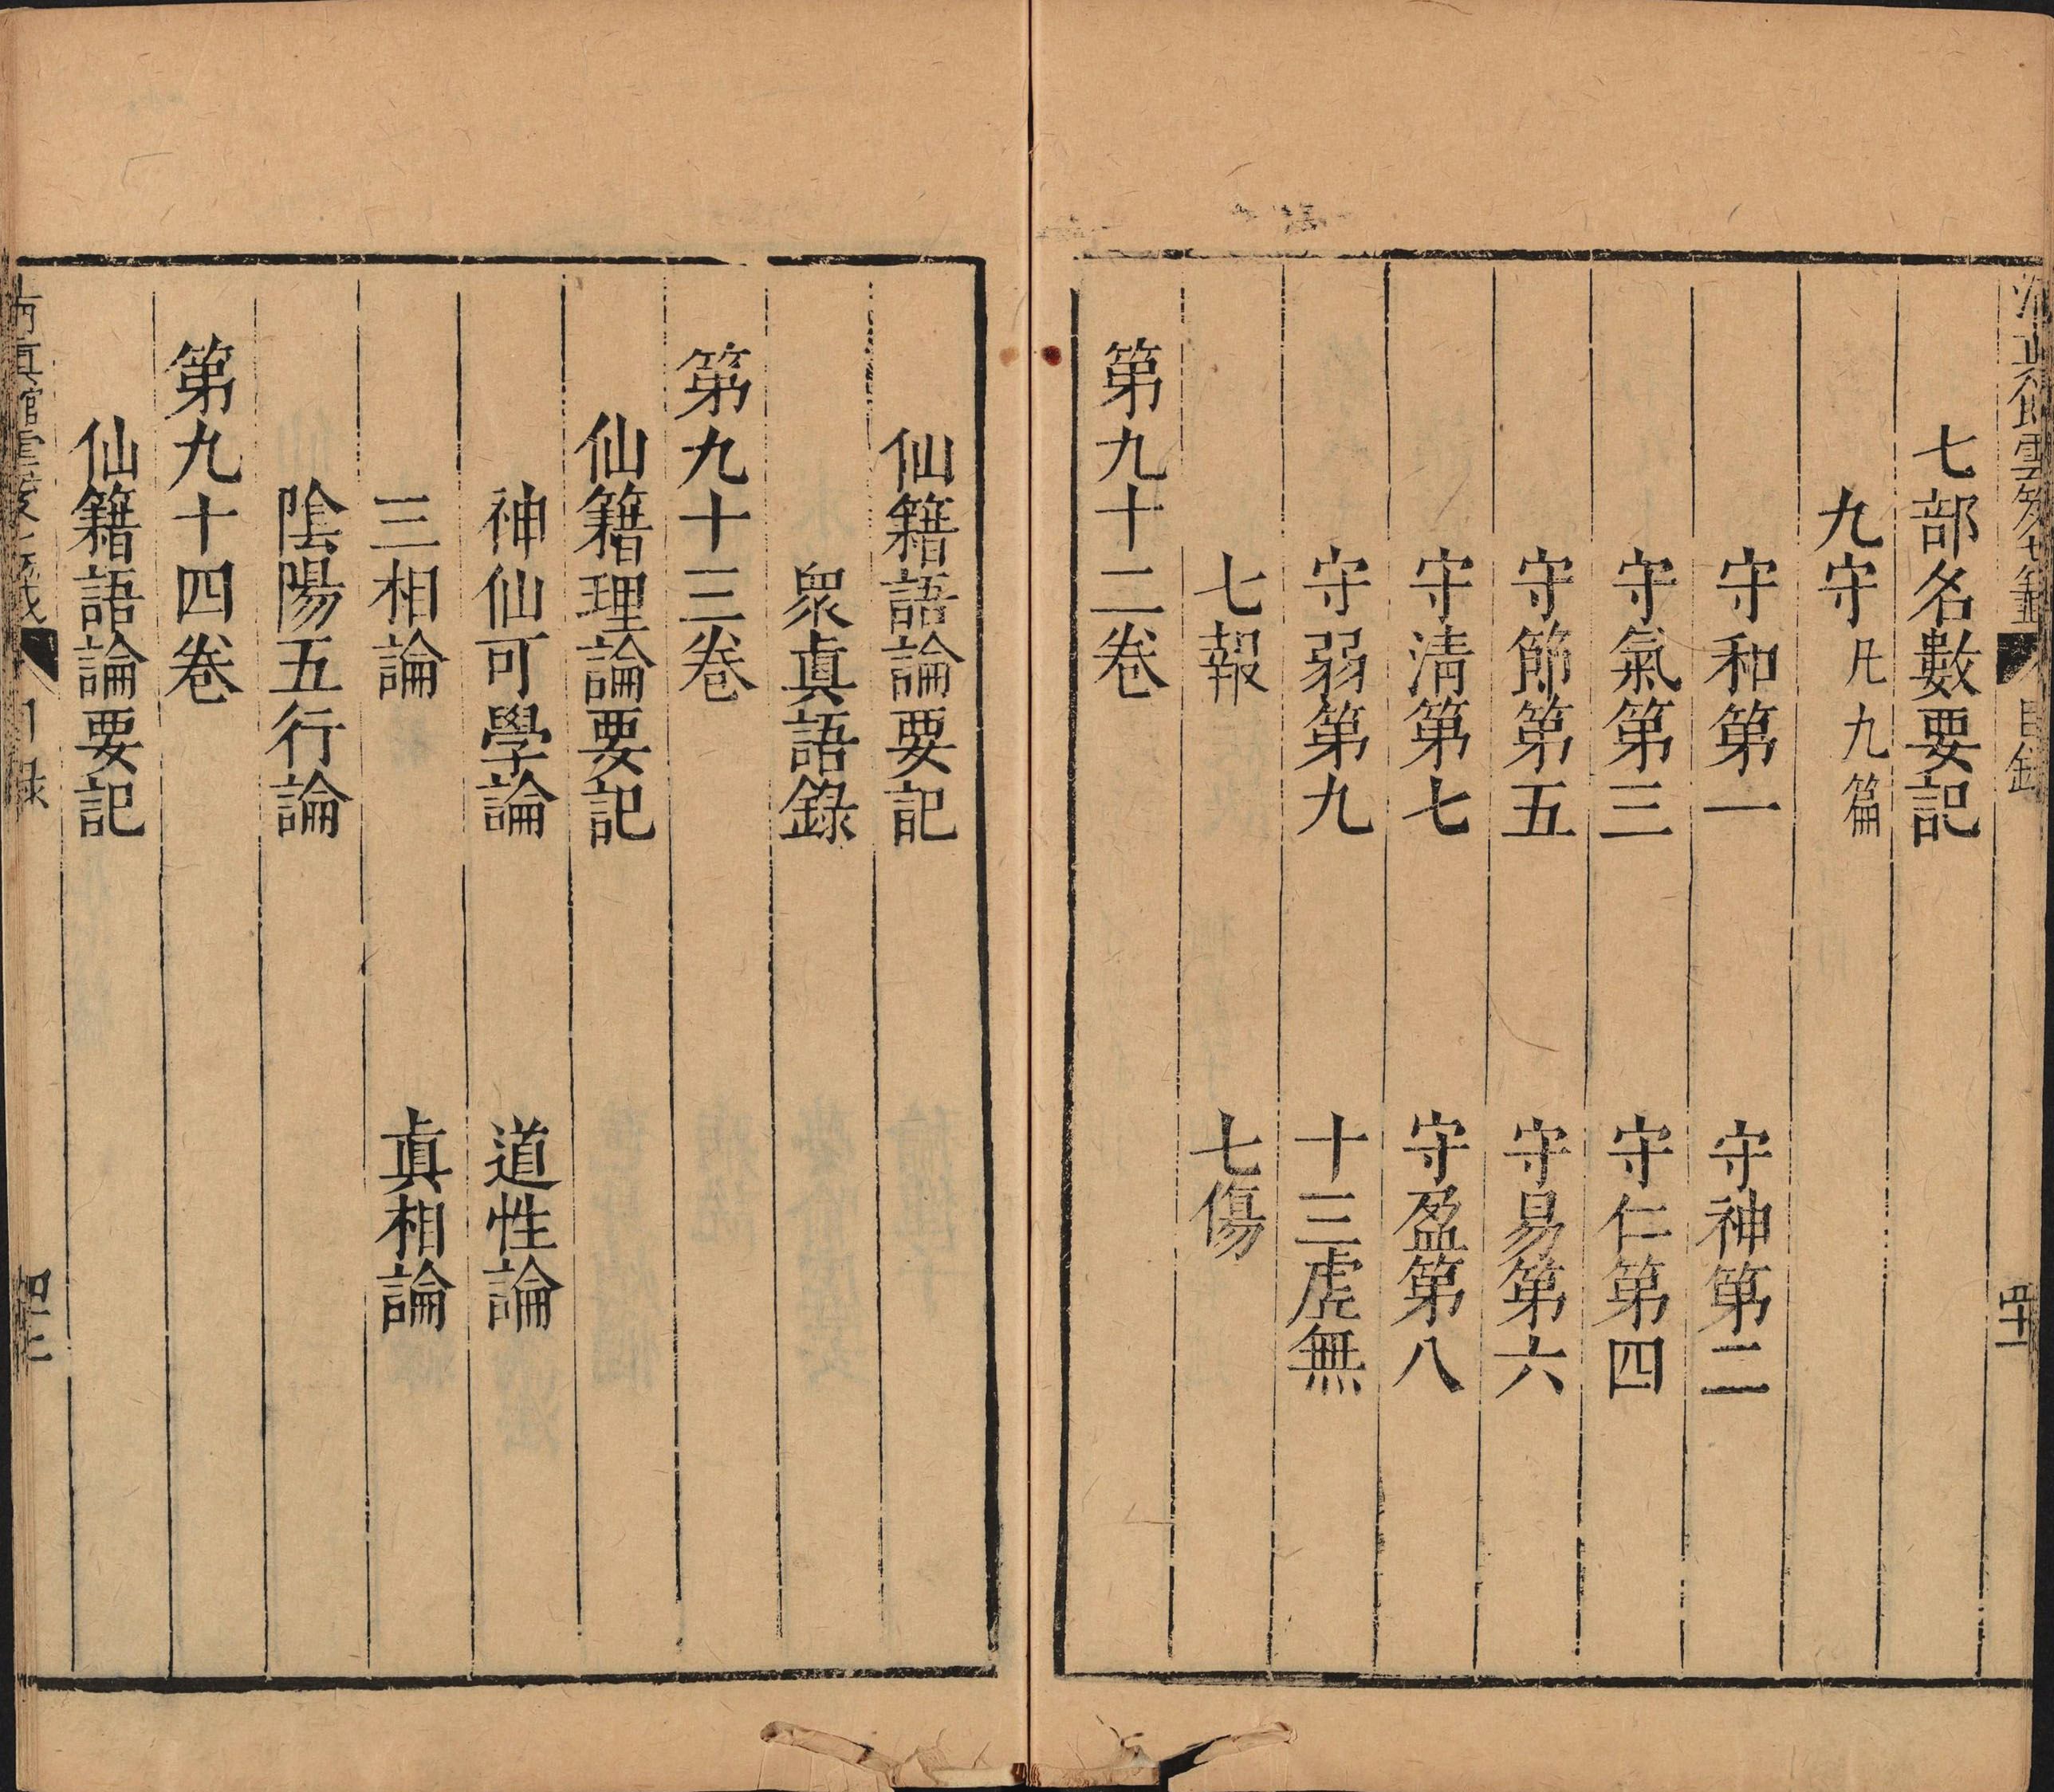 七部名數要記
九守 凡九篇
守和第一 守神第二
守氣第三 守仁第四
守節第五 守易第六
守淸第七 守盈第八
守弱第九 十三虛無
七報 七傷
第九十二卷
仙籍語論要記
眾眞語錄
第九十三卷
仙籍理論要記
神仙可學論 道性論
三相論 眞相論
陰陽五行論
第九十四卷
仙籍語論要記